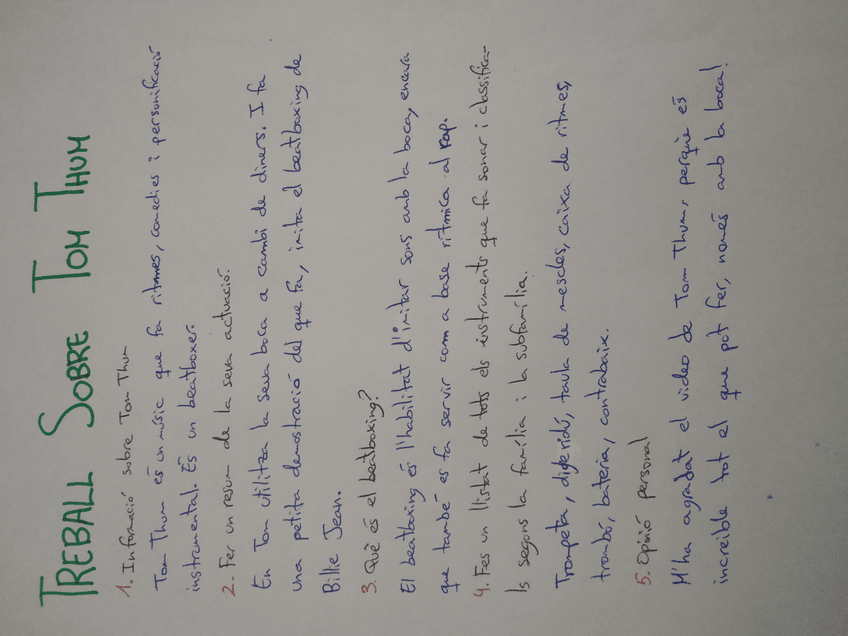 TREBALL SOBRE TOM THUM
1. Informació sobre Tom Thum
Tom Thum és un músic que fa ritmes, comèdies i personificació
instrumental. És un beatboxer.
2. Fer un resum de la seva actuació.
En Tom utilitza la seva boca a canbi de diners. I fa
una petita demostració del que fa, imita el beatboxing de
Billie Jean.
3. Què és el beatboxing?
El beatboxing és l'habilitat d'imitar sons amb la boca, encara
que també es fa servir com a base rítmica al rap.
4. Fes un llistat de tots els instruments que fa sonar i classifica-
ls segons la família i la subfamília.
Trompeta, digeridú, taula de mescles, caixa de ritmes,
trombó, bateria, contrabaix.
5. Opinió personal
M'ha agradat el video de Tom Thum, perquè és
increïble tot el que pot fer, només amb la boca!